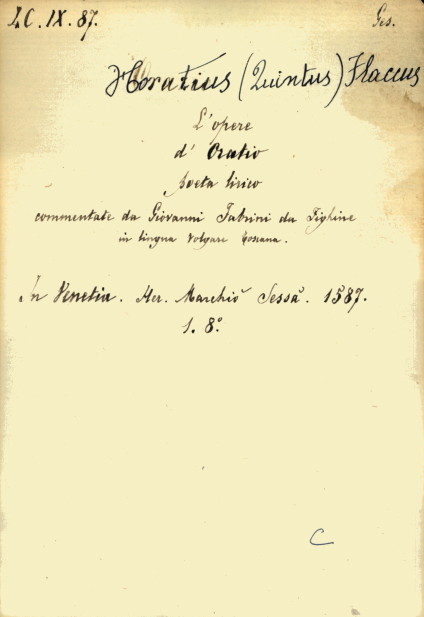 LC. IX. 87. Ges.
Horatius (Quintus) Flaccus
L'opere
d' Oratio
poeta lirico
commentate da Giovanni Fabrini da Fighine
in lingua volgare toscana.
In Venetia. Her. Marchiò Sessa. 1587.
1. 8°
C